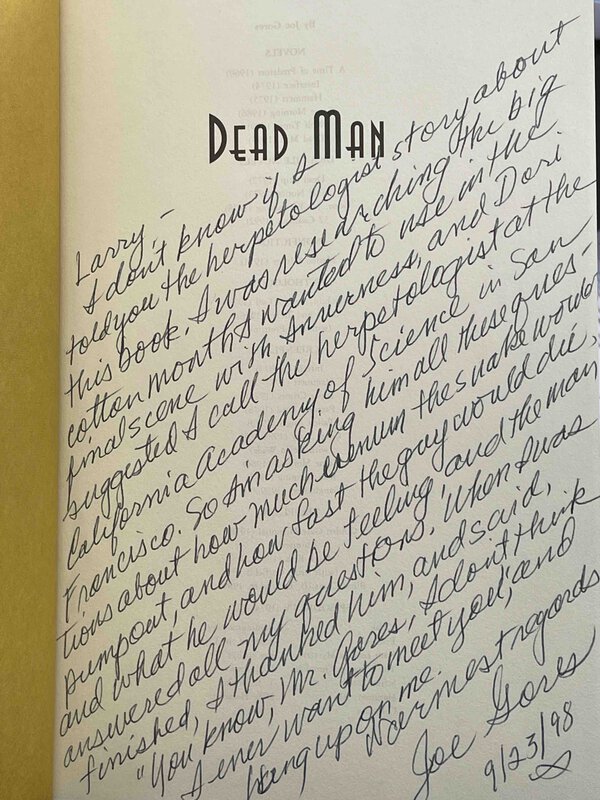 DEAD MAN
Larry, –
I don't know if I
told you the herpetologist story about
this book. I was researching the big
cotton mouths I wanted to use in the
final scene with Inverness, and Dori
suggested I call the herpetologist at the
California Academy of Science in San
Francisco. So I'm asking him all these ques-
tions about how much venum the snake would
pump out, and how fast the guy would die,
and what he would be feeling, and the man
answered all my questions. When I was
finished, I thanked him, and said,
"You know, Mr. Gores, I don't think
I ever want to meet you," and
hung up on me.
Warmest regards
Joe Gores
9/23/98